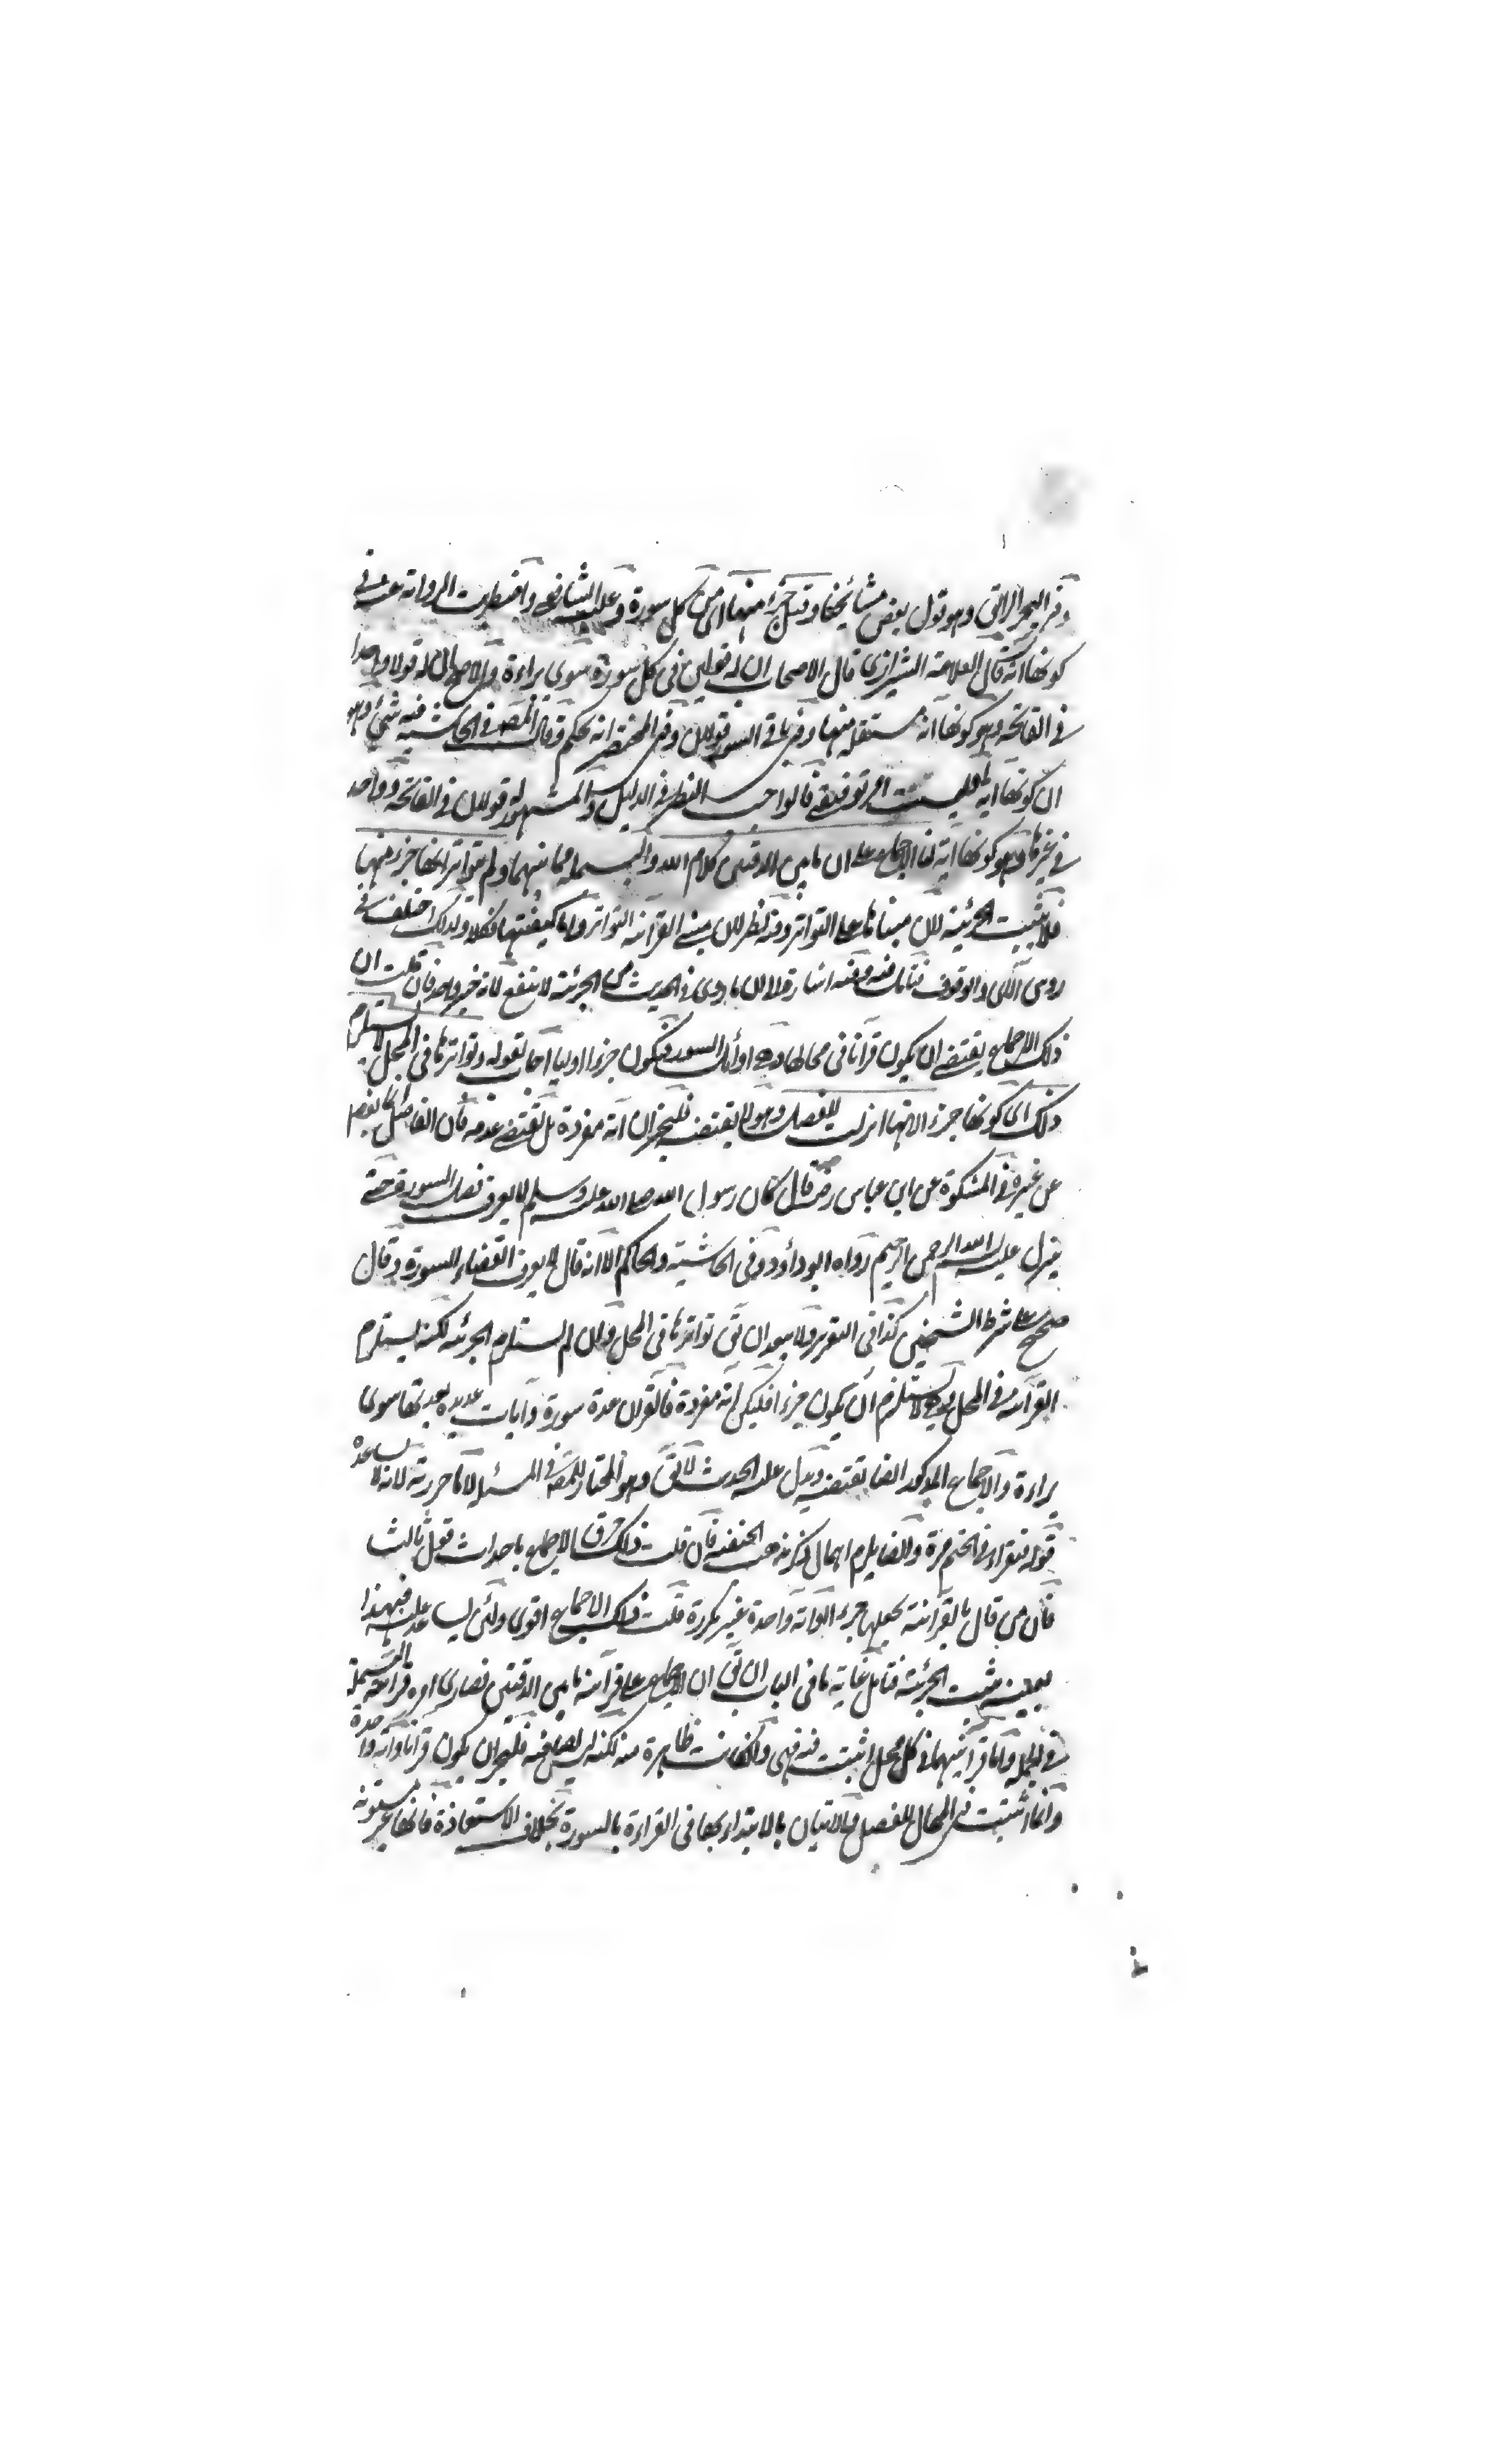 وفى البحر الرائق وهو قول بعض مشائخنا وقيل جزء منها اى من كل سورة وعليه الشافعى واضطربت الرواية عنه فى
كونها آية قال العلامة الشيرازى قال الاصحاب ان له قولين فى كل سورة سوى براءة والاصح ان له قولا واحدا
فى الفاتحة وهو كونها آية مستقلة منها وفى باقى السور قولان وفى المختصر انه تحكم وقال المص فى الحاشية فيه شئ وهو
ان كونها آية ليست امر توقيفى فالواجب النظر فى الدليل والمشهور له قولان فى الفاتحة وواحد
فى غيرها وهو كونها آية لنا الاجماع على ان ما بين الدفتين كلام الله والبسملة مما بينهما ولم يتواتر انها جزء منها
فلا يثبت الجزئية لان مبناها على التواتر وفيه نظر لان مبنى القرآنية التواتر واما كيفيتها فكلا ولذلك اختلف فى
روس الآى والوقوف فتامل فيه وفيه اشارة الى ان ما روى فى الحديث من الجزئية لا ينفع لانه خبر واحد فان قلت ان
ذلك الاجماع يقتضى ان يكون قرآنا فى محالها وهى اوائل السور فيكون جزءا اوليا اجاب بقوله وتواترها فى المحل لا يستلزم
ذلك اى كونها جزء لانها انزلت للفصل وهو لا يقتضيه فليجز ان آية مفردة بل تقتضى عدمه فان الفاصل يفصم
عن غيره فى المشكوة عن ابن عباس رض قال كان رسول الله صلى الله عليه وسلم لا يعرف فصل السورة حتى
ينزل عليه بسم الله الرحمن الرحيم رواه ابو داود وفى الحاشية والحاكم الا انه قال لا يعرف انقضاء السورة وقال
صحيح على شرط الشيخين كذا فى التقرير ولا يبعد ان يق تواترها فى المحل وان لم يستلزم الجزئية لكنه يستلزم
القرآنية فى المحل وهو لا يستلزم ان يكون جزءا فليكن آية مفردة فالقرآن عدة سورة وآيات عديدة بعدتها سوى
براءة والاجماع المذكور ايضا يقتضيه ويدل عليه الحديث الآتى وهو المختار للمص فى المسئلة الا ما حررته لانه لا يساعده
قوله فتقرأ فى الختم مرة وايضا يلزم اهمال ذكر مذهب الحنفية فان قلت ذلك خرق الاجماع باحداث قول ثالث
فان من قال بالقرآنية يجعلها جزء او آية واحدة غير مكررة قلت ذلك الاجماع اقوى ولئن يساعد عليه فبهذا
بعينه يثبت الجزئية فتامل غاية ما فى الباب ان يق ان الاجماع على قرآنية ما بين الدفتين قصارى امره قرآنية البسملة
فى الجملة واما قرآنيتهما فى كل محل اثبتت فيه فهى وان كانت ظاهرة منه لكنه ليس بنص فيه فليجز ان يكون قرآنا وآية واحدة
وانما اثبتت فى المحال للفصل والاتيان بالابتداء بها فى القراءة بالسورة بخلاف الاستعاذة فانها غير مسنونة